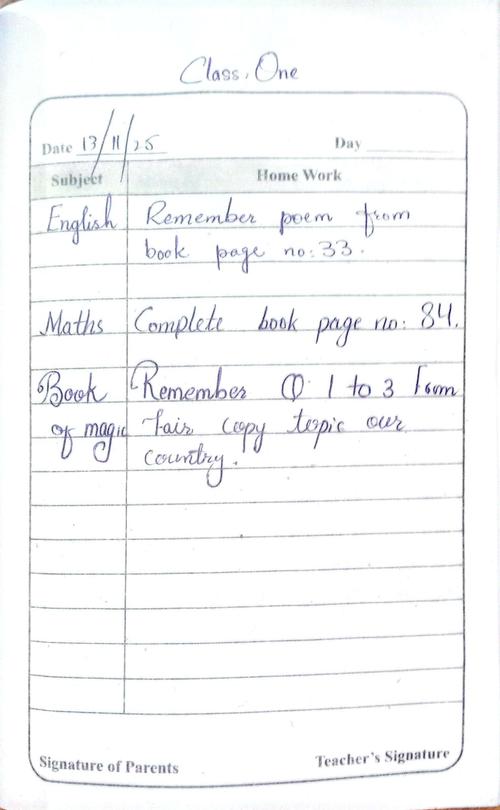 Class, One
Date 13/11/25 Day
Subject Home Work
English Remember poem from
book page no: 33.
Maths Complete book page no: 84.
Book Remember Q 1 to 3 from
of magic Fair copy topic our
country.
Signature of Parents Teacher's Signature